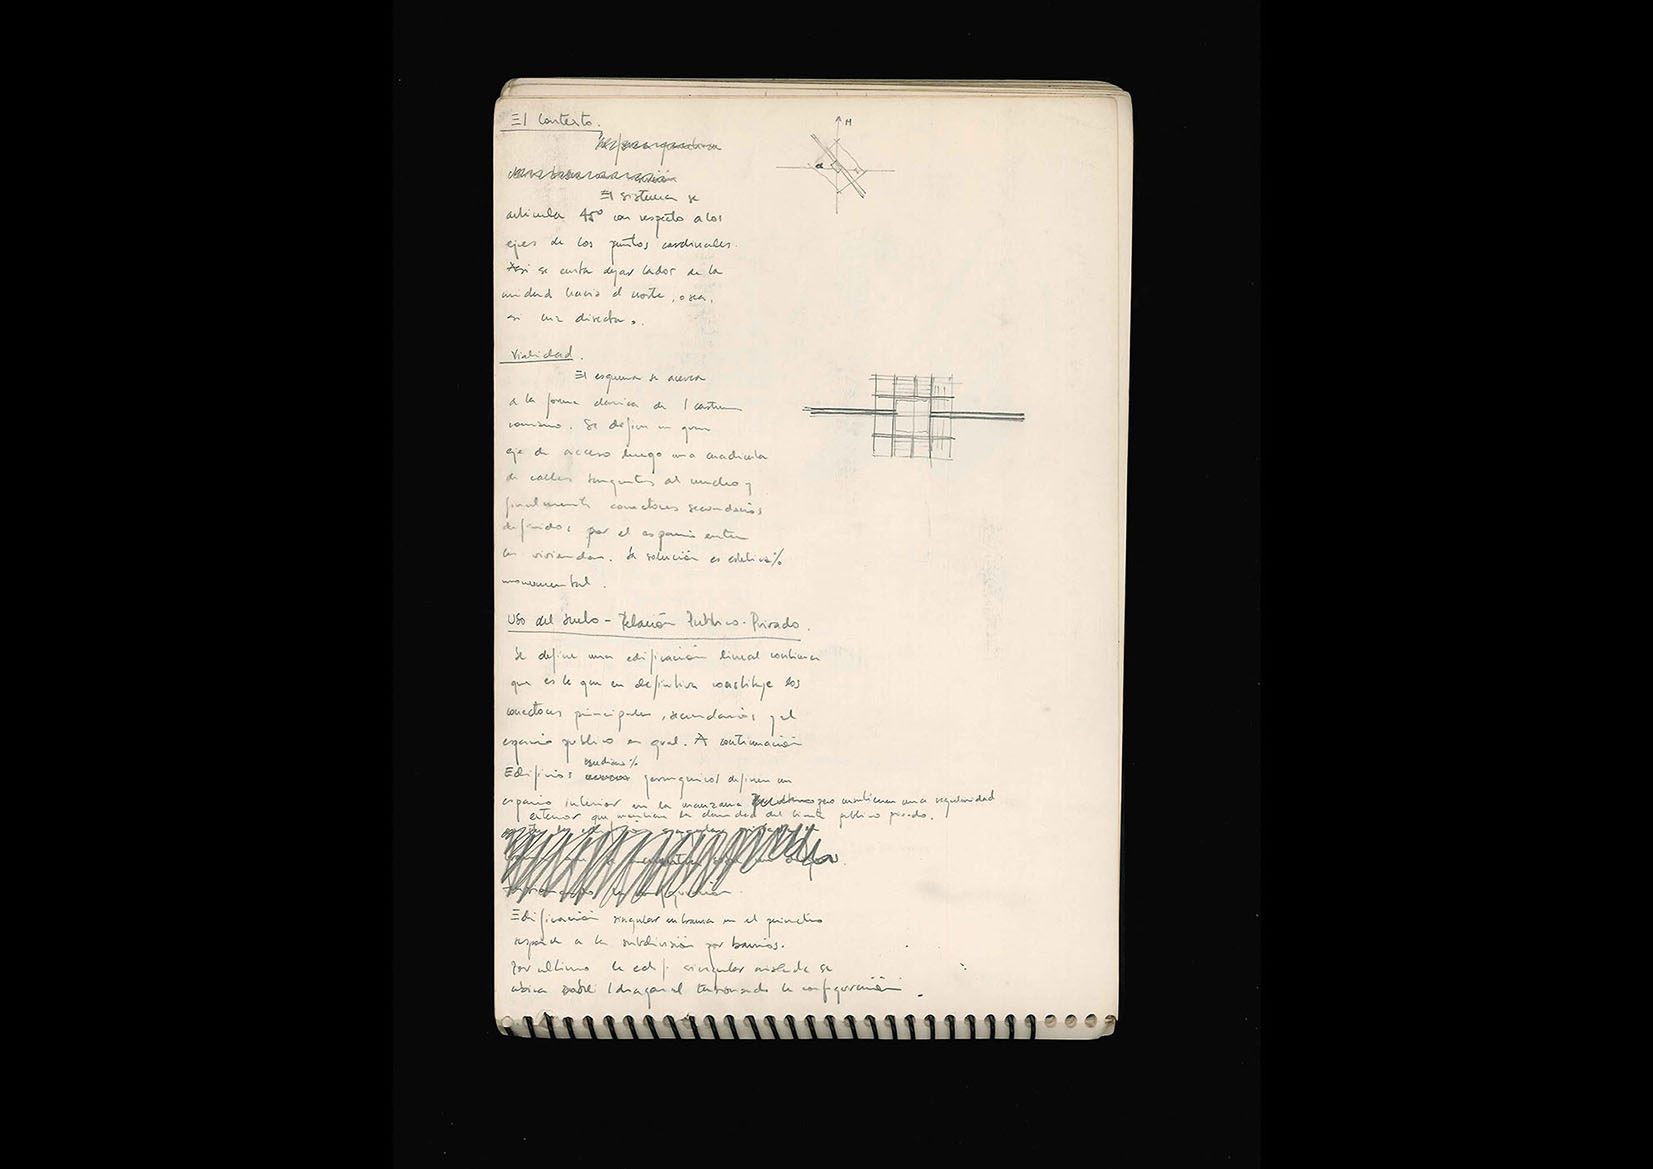 El Contexto.
N
El sistema se
articula 45° con respecto a los
ejes de los puntos cardinales.
Asi se evita dejar lados de la
unidad hacia el norte, o sea,
sin luz directa.
Vialidad.
El esquema se acerca
a la forma clásica de 1 castrum
romano. Se define un gran
eje de acceso luego una cuadricula
de calles tangentes al nucleo y
finalmente conectores secundarios
definidos por el espacio entre
las viviendas. La solución es
monumental.
Uso del Suelo - Relación Publico - Privado.
Se define una edificación lineal continua
que es la que en definitiva constituye los
conectores principales, secundarios y el
espacio publico en gral. A continuación
mediano%
Edificios jerarquicos definen un
espacio interior en la manzana pero mantienen una regularidad
exterior que mantiene la claridad del limite publico privado.
Edificación singular en el perimetro
responde a la subdivisión por barrios.
Por ultimo la edif. singular aislada se
ubica sobre 1 diagonal tensionando la configuración.